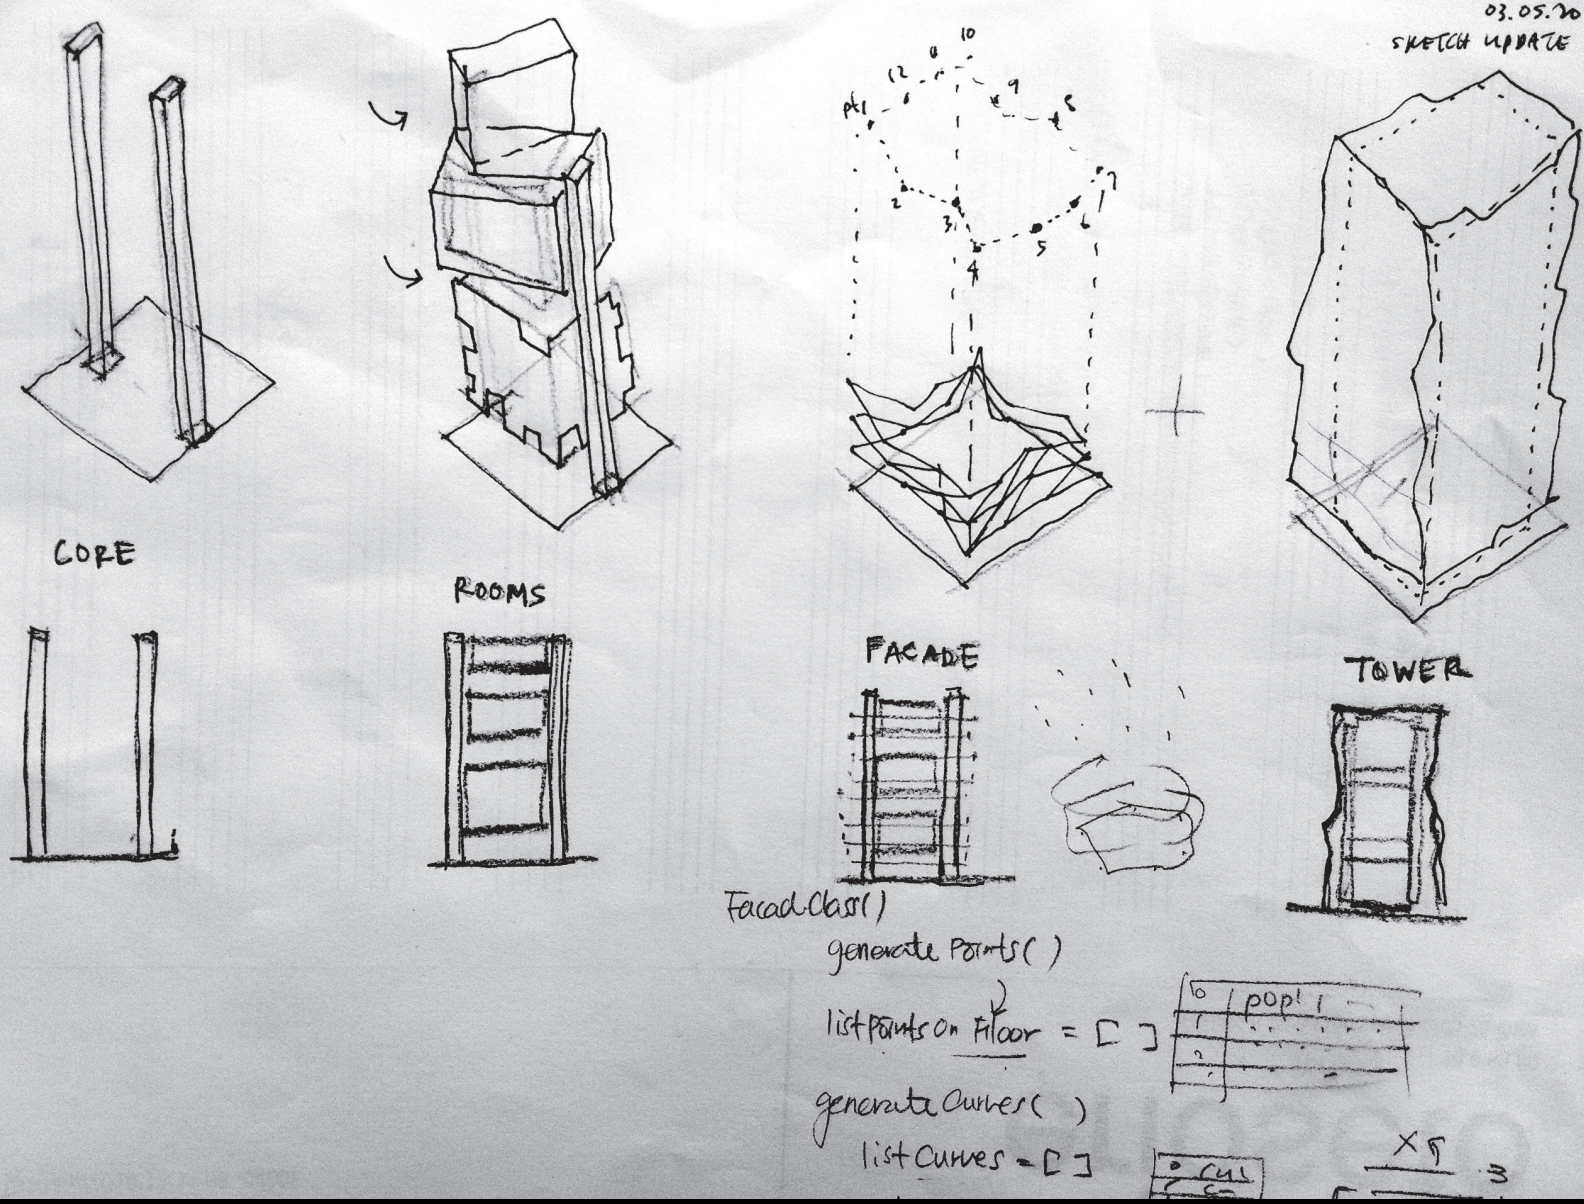 03.05.20
SKETCH UPDATE
10
12
9
8
pt1
7
2
3
6
5
4
CORE
ROOMS
FACADE
TOWER
FacadClass()
generate Points( )
list points on Floor = [ ]
0 pop! 1
1
2
generate Curves( )
list Curves = [ ]
0
3